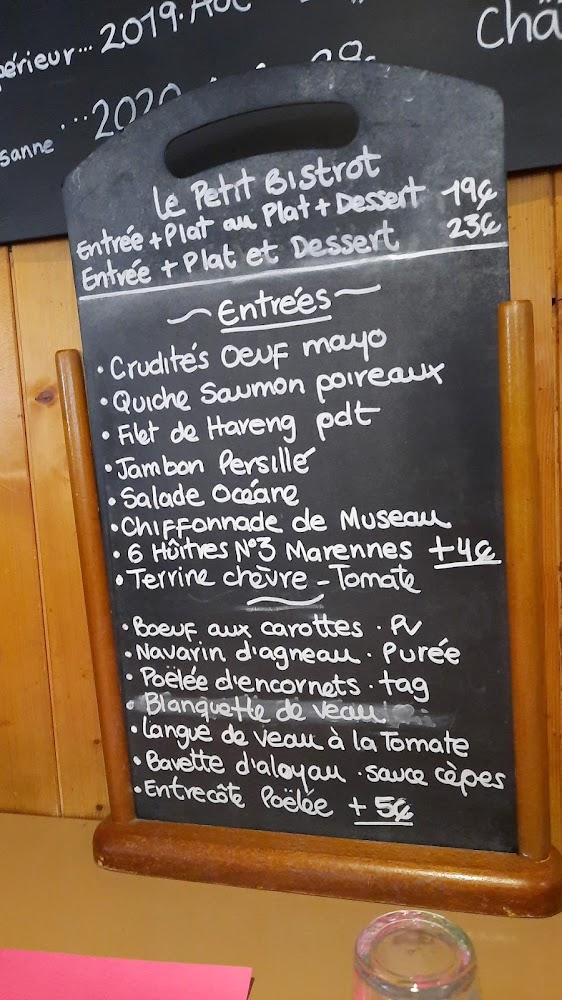 2019.
périeur...
2020
sanne ...
Le Petit Bistrot
Entrée + Plat au Plat + Dessert 19€
Entrée + Plat et Dessert 23€
Entrées
• Crudités Oeuf mayo
• Quiche Saumon poireaux
• Filet de Hareng pdt
• Jambon Persillé
• Salade Océane
• Chiffonnade de Museau
• 6 Huîtres N°3 Marennes +4€
• Terrine chèvre - Tomate
• Boeuf aux carottes . PV
• Navarin d'agneau . Purée
• Poëlée d'encornets . tag
• Blanquette de veau
• Langue de veau à la Tomate
• Bavette d'aloyau . sauce cèpes
• Entrecôte Poëlée + 5€